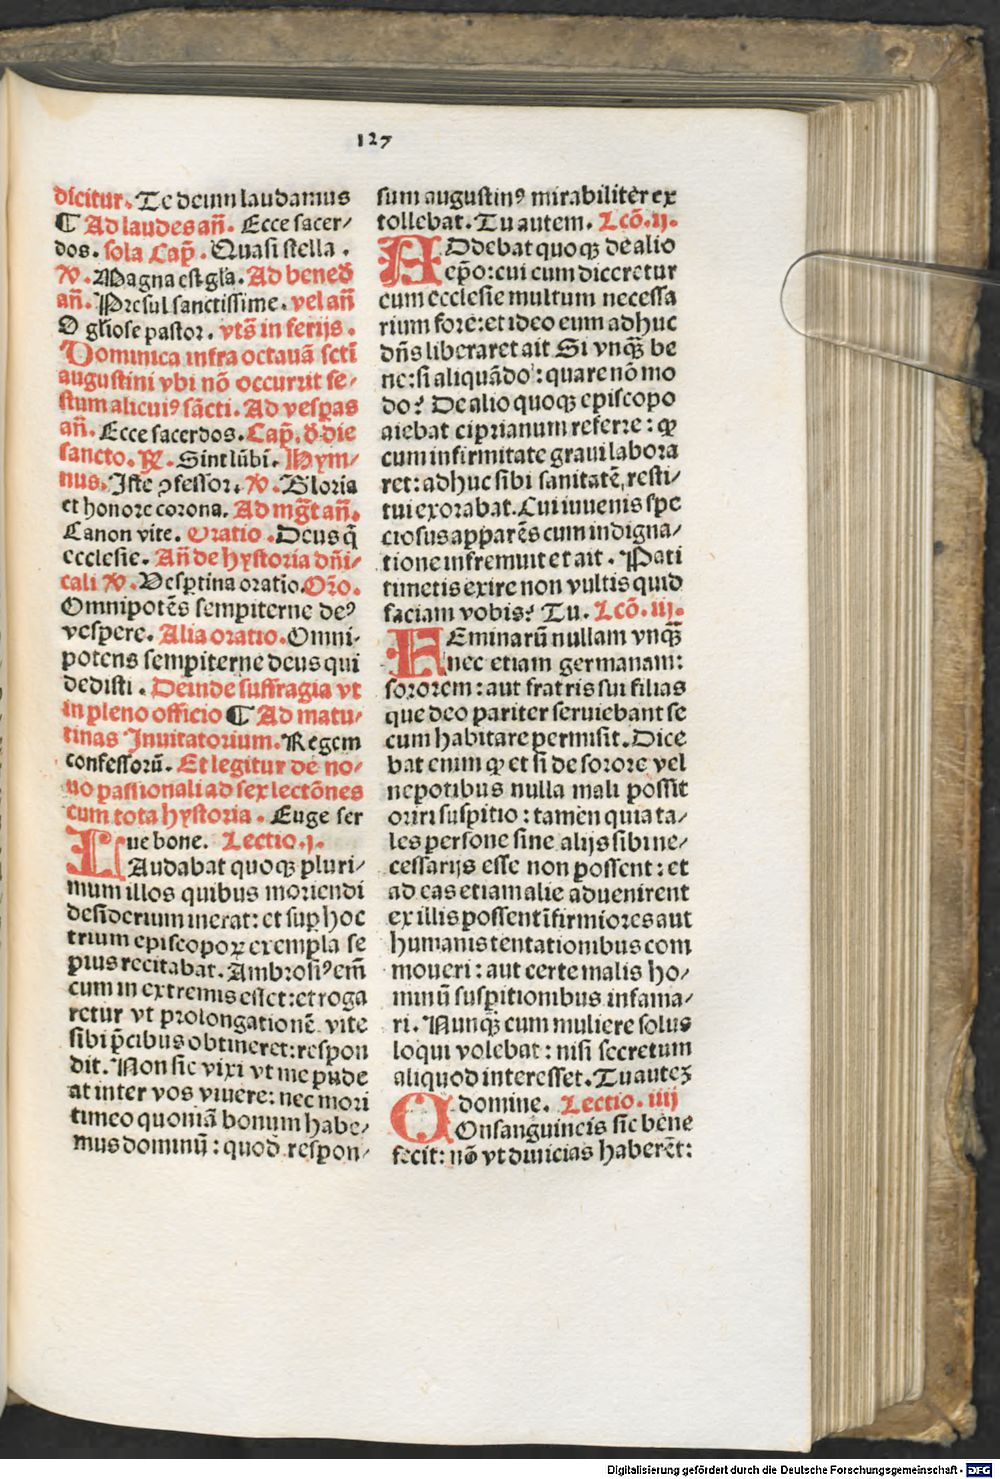 127
dicitur. Te deum laudamus
¶ Ad laudes an̄. Ecce sacer-
dos. sola Cap̄. Quasi stella.
℣. Magna est gl̄a. Ad bened̄
an̄. Presul sanctissime. vel an̄
O gl̄iose pastor. vts̄ in ferijs.
Dominica infra octauā scti
augustini vbi nō occurrit fe-
stum alicuiꝰ sācti. Ad vesp̄as
an̄. Ecce sacerdos. Cap̄. d̄ die
sancto. ℟. Sint lūbi. Hym-
nus. Iste ꝯfessor. ℣. Gloria
et honore corona. Ad mḡt an̄.
Canon vite. Oratio. Deus q̄
ecclesie. An̄ de hystoria dn̄i-
cali ℣. Vesp̄tina oratio. Or̄o.
Omnipotēs sempiterne deꝰ
vespere. Alia oratio. Omni-
potens sempiterne deus qui
dedisti. Deinde suffragia vt
in pleno officio ¶ Ad matu-
tinas Inuitatorium. Regem
confessorū. Et legitur de no-
uo passionali ad sex lectōnes
cum tota hystoria. Euge ser
ue bone. Lectio. j.
LAudabat quoqꝫ pluri-
mum illos quibus moriendi
desiderium inerat: et sup̄ hoc
trium episcopoꝝ exempla se
pius recitabat. Ambrosiꝰ em̄
cum in extremis esset: et roga
retur vt prolongationē vite
sibi p̄cibus obtineret: respon
dit. Non sic vixi vt me pude
at inter vos viuere: nec mori
timeo quoniā bonum habe-
mus dominū: quod respon-
sum augustinꝰ mirabiliter ex
tollebat. Tu autem. Lcō. ij.
ADdebat quoqꝫ de alio
ep̄o: cui cum diceretur
eum ecclesie multum necessa
rium fore: et ideo eum adhuc
dn̄s liberaret ait Si vnqꝫ̄ be
ne: si aliquādo: quare nō mo
do? De alio quoqꝫ episcopo
aiebat ciprianum referre: ꝙ
cum infirmitate graui labora
ret: adhuc sibi sanitatē resti-
tui exorabat. Cui iuuenis spe
ciosus apparēs cum indigna-
tione infremuit et ait. Pati
timetis exire non vultis quid
faciam vobis? Tu. Lcō. iij.
FEminarū nullam vnqꝫ̄
nec etiam germanam:
sororem: aut fratris sui filias
que deo pariter seruiebant se
cum habitare permisit. Dice
bat enim ꝙ et si de sorore vel
nepotibus nulla mali possit
oriri suspitio: tamen quia ta-
les persone sine alijs sibi ne-
cessarijs esse non possent: et
ad eas etiam alie aduenirent
ex illis possent īfirmiores aut
humanis tentationibus com
moueri: aut certe malis ho-
minū suspitionibus infama-
ri. Nunqꝫ̄ cum muliere solus
loqui volebat: nisi secretum
aliquod interesset. Tu auteꝫ
domine. Lectio. iiij
COnsanguineis sic bene
fecit: nō vt diuicias haberēt:
Digitalisierung gefördert durch die Deutsche Forschungsgemeinschaft - DFG